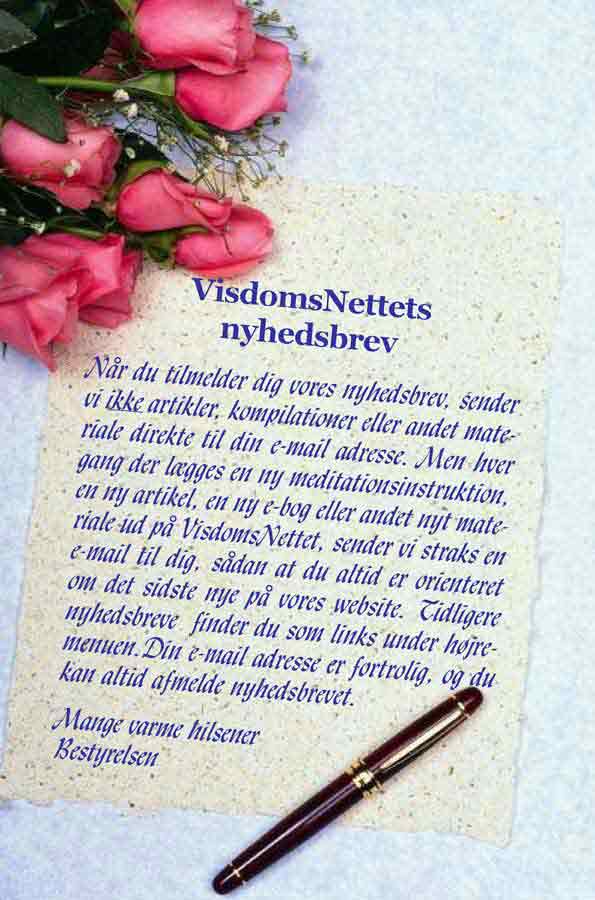 VisdomsNettets
nyhedsbrev
Når du tilmelder dig vores nyhedsbrev, sender
vi ikke artikler, kompilationer eller andet mate-
riale direkte til din e-mail adresse. Men hver
gang der lægges en ny meditationsinstruktion,
en ny artikel, en ny e-bog eller andet nyt mate-
riale ud på VisdomsNettet, sender vi straks en
e-mail til dig, sådan at du altid er orienteret
om det sidste nye på vores website. Tidligere
nyhedsbreve finder du som links under højre-
menuen.Din e-mail adresse er fortrolig, og du
kan altid afmelde nyhedsbrevet.
Mange varme hilsener
Bestyrelsen